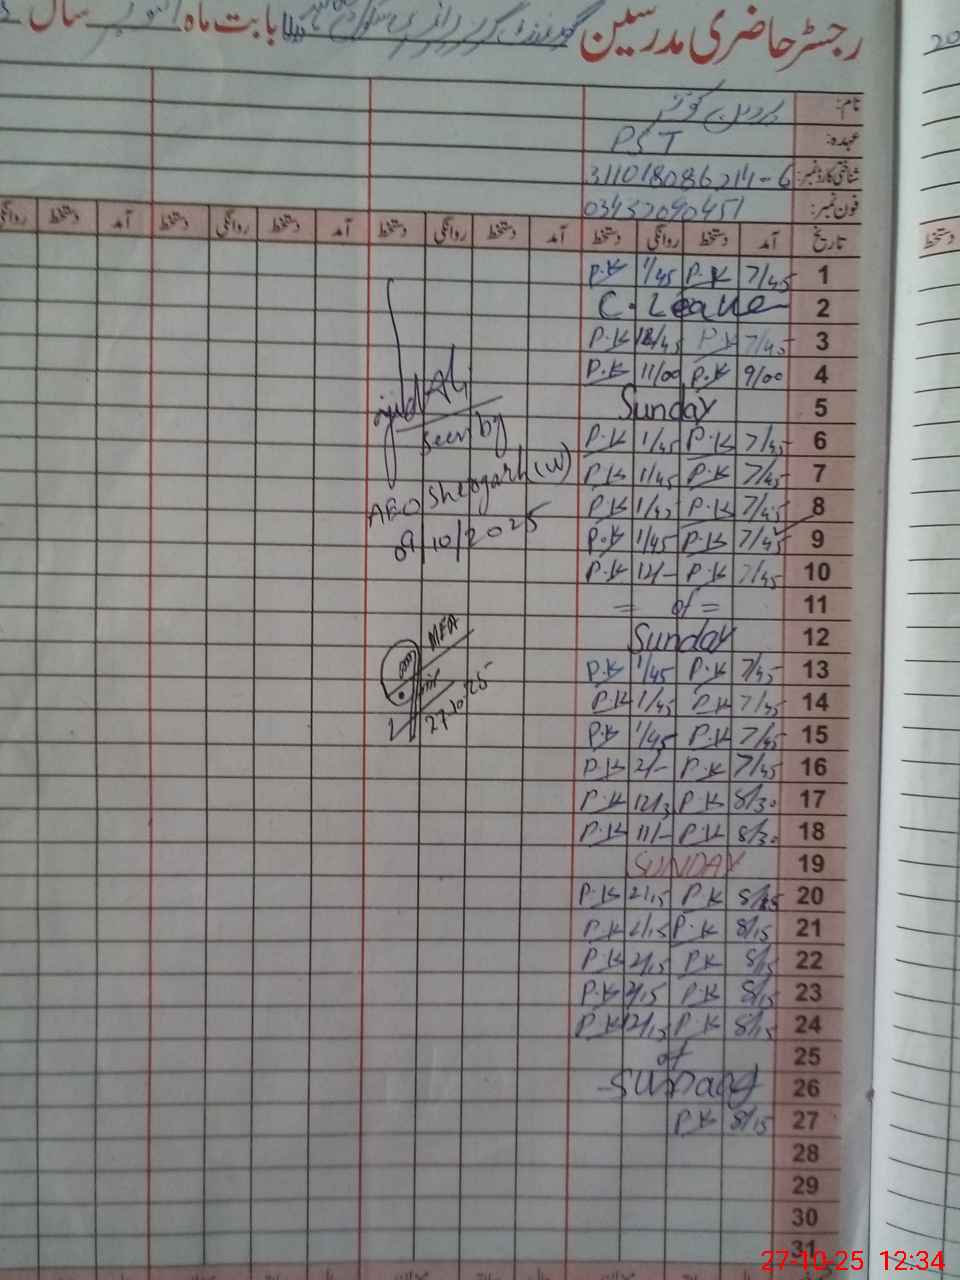 رجسٹر حاضری مدرسین بابت ماہ سال
20
نام:
عہدہ: PST
شناختی کارڈ نمبر:
فون نمبر: 03432090451
تاریخ آمد دستخط روانگی دستخط آمد دستخط روانگی دستخط آمد دستخط روانگی دستخط آمد دستخط روانگی
دستخط
1 7/45 P.K 1/45 P.K
2 C. Leave
3 7/45 P.K P.K
4 9/00 P.K 11/00 P.K
5 Sunday
6 7/45 P.K 1/45 P.K
7 7/45 P.K 1/45 P.K
8 7/45 P.K 1/45 P.K
9 7/45 P.K 1/45 P.K
10 7/45 P.K 12/- P.K
11 = of =
12 Sunday
13 7/45 P.K 1/45 P.K
14 7/45 P.K 1/45 P.K
15 7/45 P.K 1/45 P.K
16 7/45 P.K 2/- P.K
17 8/30 P.K 12/3 P.K
18 8/30 P.K 11/- P.K
19 SUNDAY
20 8/15 P.K 2/15 P.K
21 8/15 P.K 2/15 P.K
22 8/15 P.K 2/15 P.K
23 8/15 P.K 2/15 P.K
24 8/15 P.K 12/15 P.K
25 of
26 Sunday
27 8/15 P.K
28
29
30
31
Seen by
AEO Shergarh (W)
09/10/2025
MEA
27-10-25
27-10-25 12:34